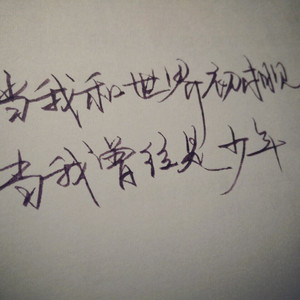 当我和世界初相见
当我曾经是少年